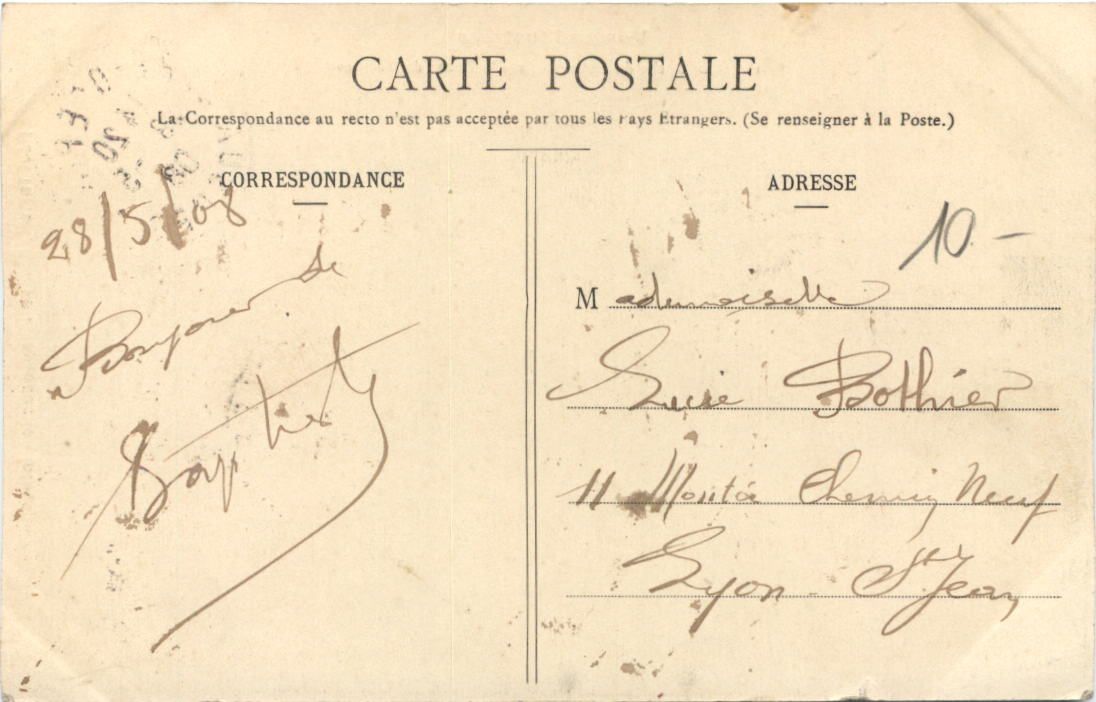 CARTE POSTALE
La Correspondance au recto n'est pas acceptée par tous les Pays Etrangers. (Se renseigner à la Poste.)
CORRESPONDANCE
28/5/08
Bonjour de
Baptiste
ADRESSE
10 -
Mademoiselle
Lucie Bothier
11 Montée Chemin Neuf
Lyon St Jean